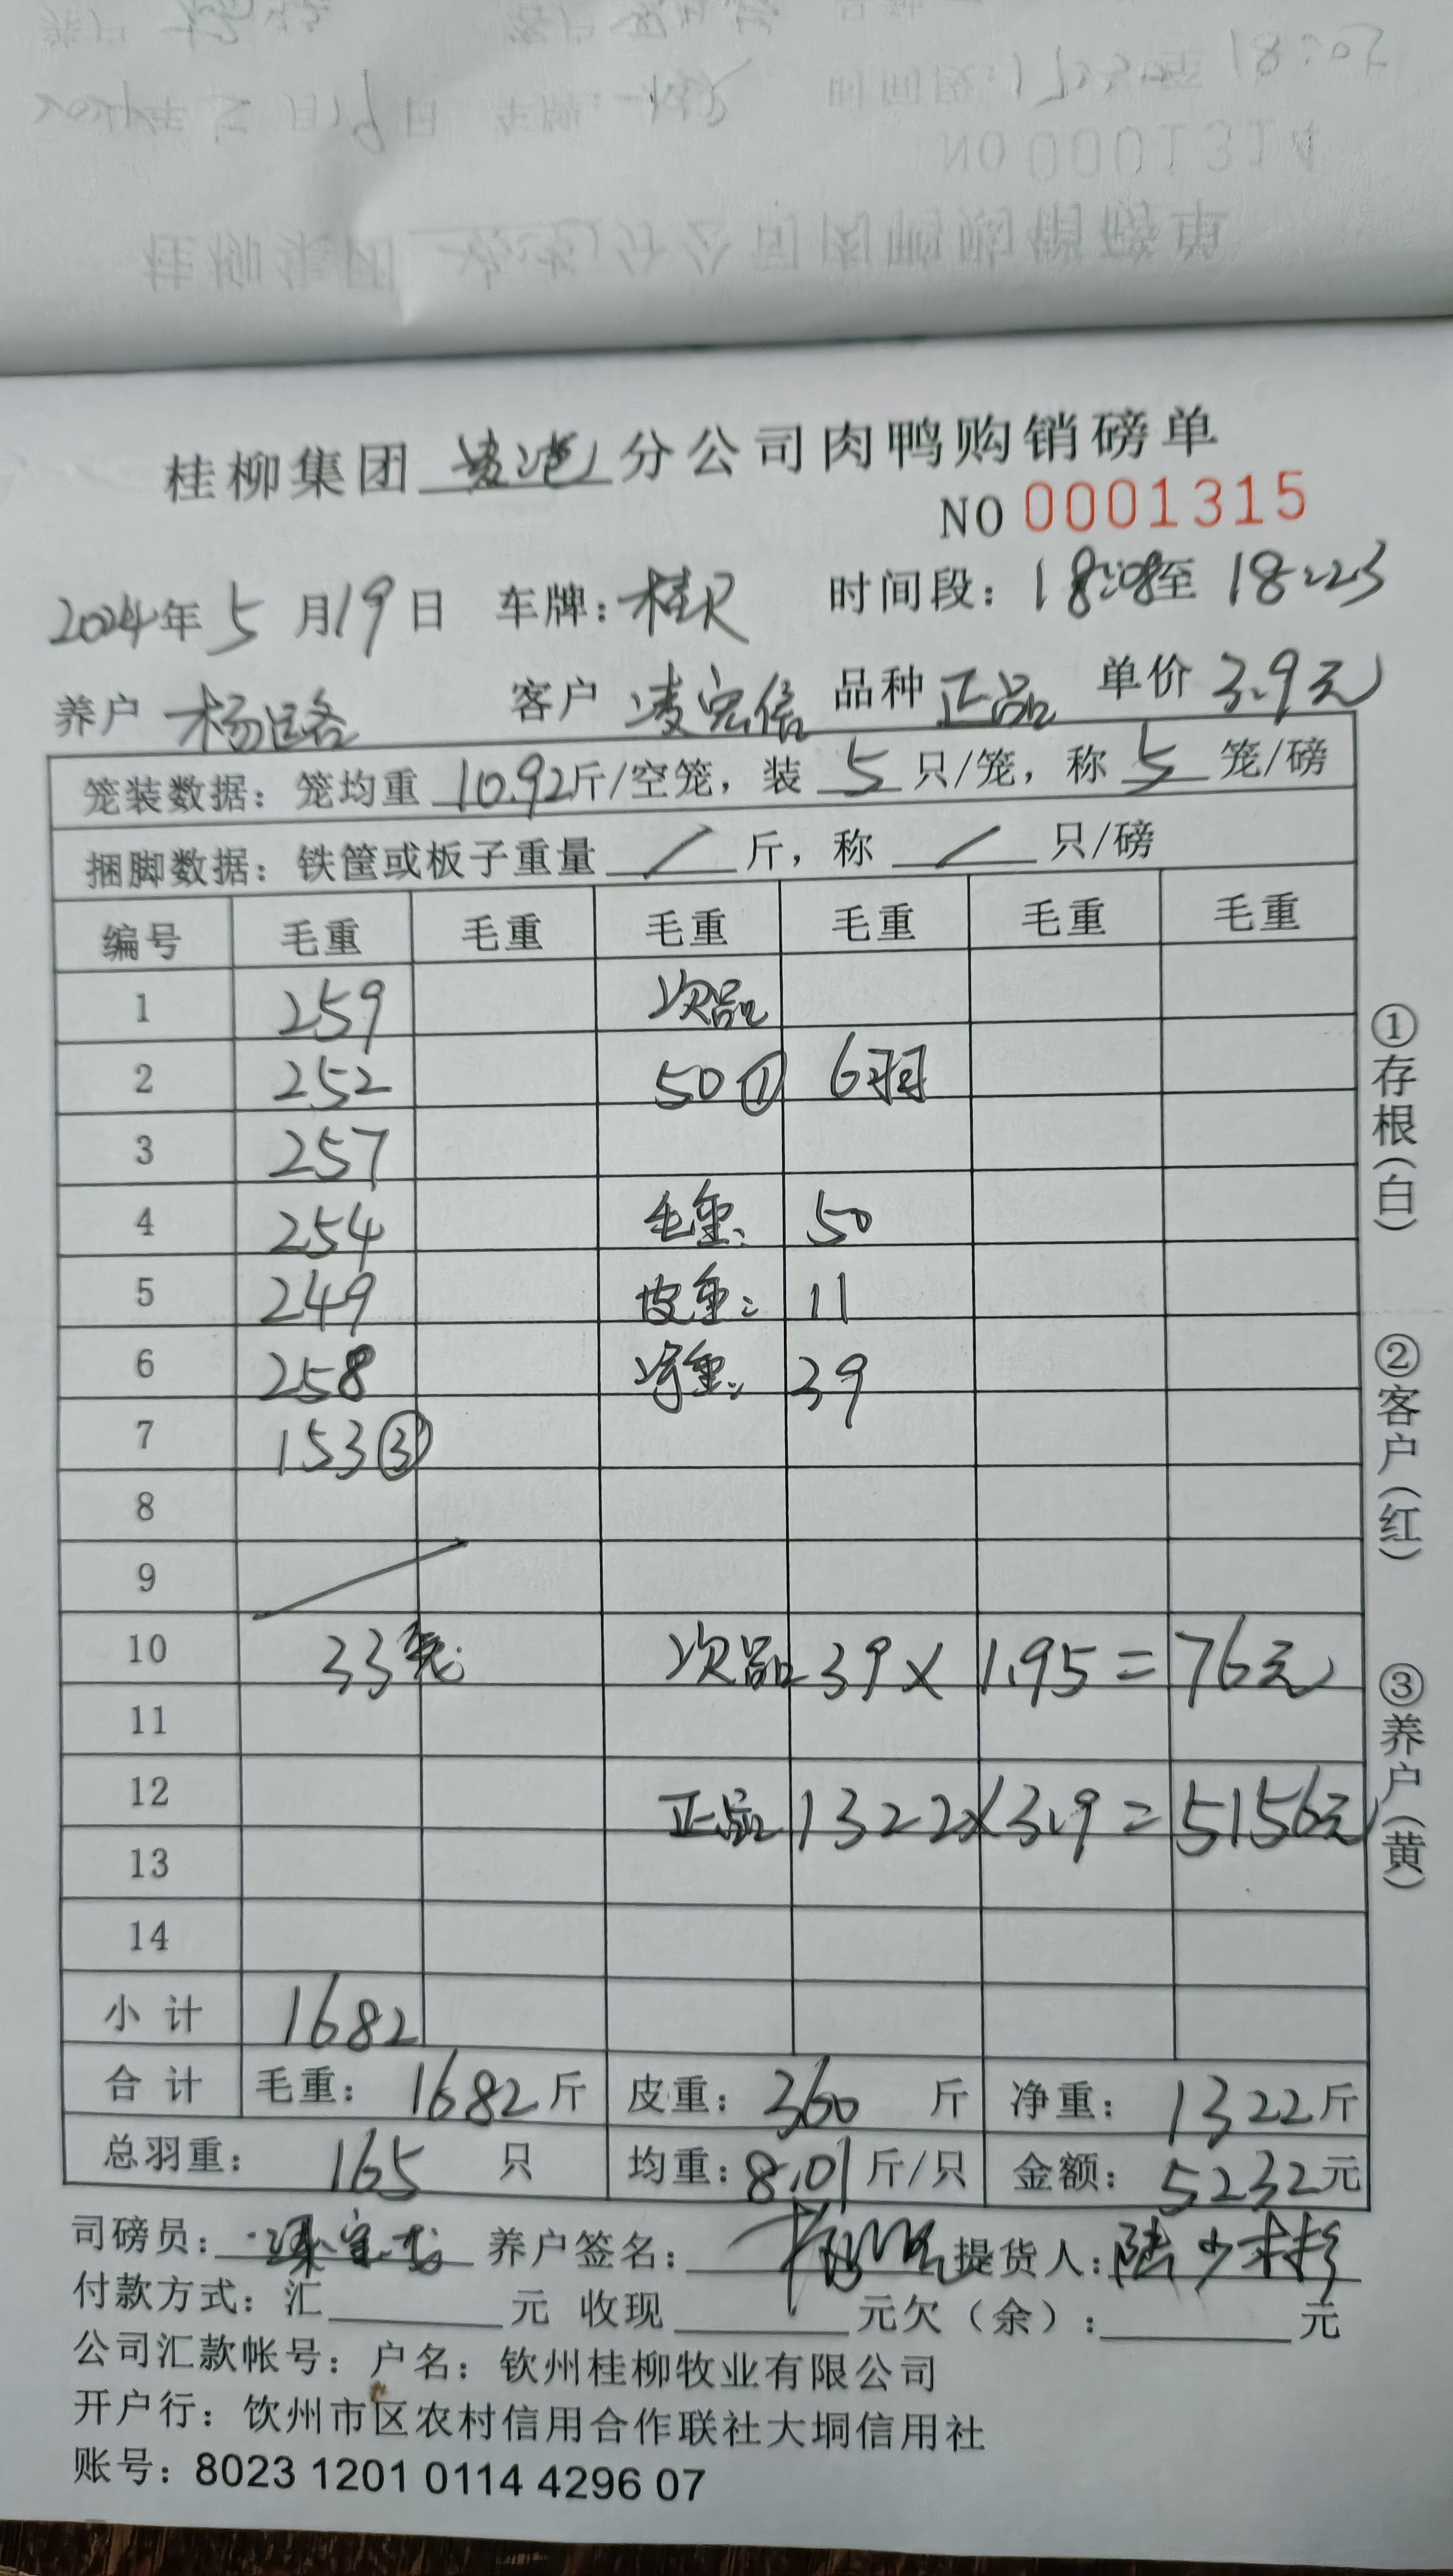 NO 0001314
桂柳集团 分公司肉鸭购销磅单
NO 0001315
2024年 5 月 19 日 车牌：桂R 时间段：18:08至 18:23
养户 杨 客户 凌宏信 品种 正品 单价 3.9元
笼装数据：笼均重 10.92斤/空笼，装 5 只/笼，称 5 笼/磅
捆脚数据：铁筐或板子重量 / 斤，称 / 只/磅
编号 毛重 毛重 毛重 毛重 毛重 毛重
1 259 次品
2 252 50① 6羽
3 257
4 254 毛重： 50
5 249 皮重： 11
6 258 净重： 39
7 153③
8
9
10 33笼 次品 39× 1.95= 76元
11
12 正品 1322×3.9=5156元
13
14
小计 1682
合计 毛重：1682斤 皮重：360 斤 净重：1322斤
总羽重：165 只 均重：8.01斤/只 金额：5232元
司磅员： 养户签名： 提货人：陆少彬
付款方式：汇 元 收现 元欠（余）： 元
公司汇款帐号：户名：钦州桂柳牧业有限公司
开户行：饮州市区农村信用合作联社大垌信用社
账号：8023 1201 0114 4296 07
①存根（白）
②客户（红）
③养户（黄）